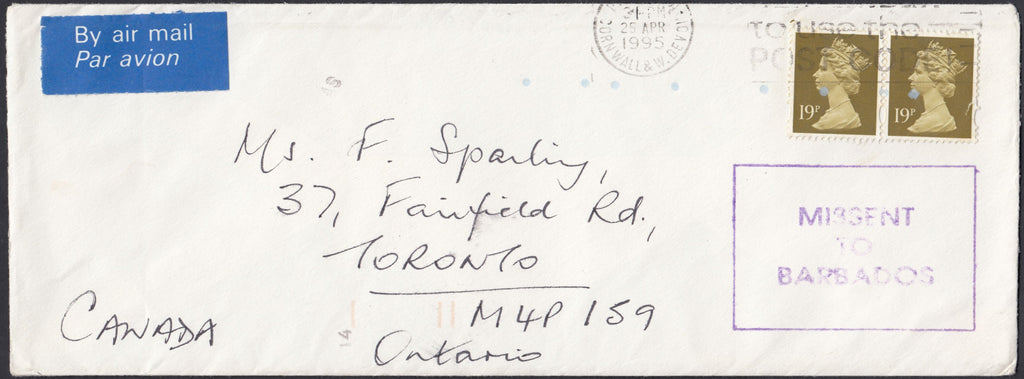 By air mail
Par avion
25 APR
1995
CORNWALL & W. DEVON
TO USE THE
POSTCODE
19P
19P
Ms. F. Sparling,
37, Fairfield Rd.,
TORONTO
M4P 1S9
Ontario
CANADA
MISSENT
TO
BARBADOS
14